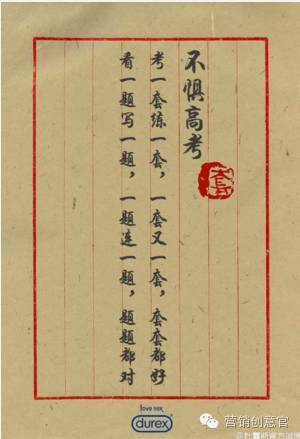 不惧高考
考一套练一套，一套又一套，套套都好
看一题写一题，一题连一题，题题都对
love sex
durex
营销创意官